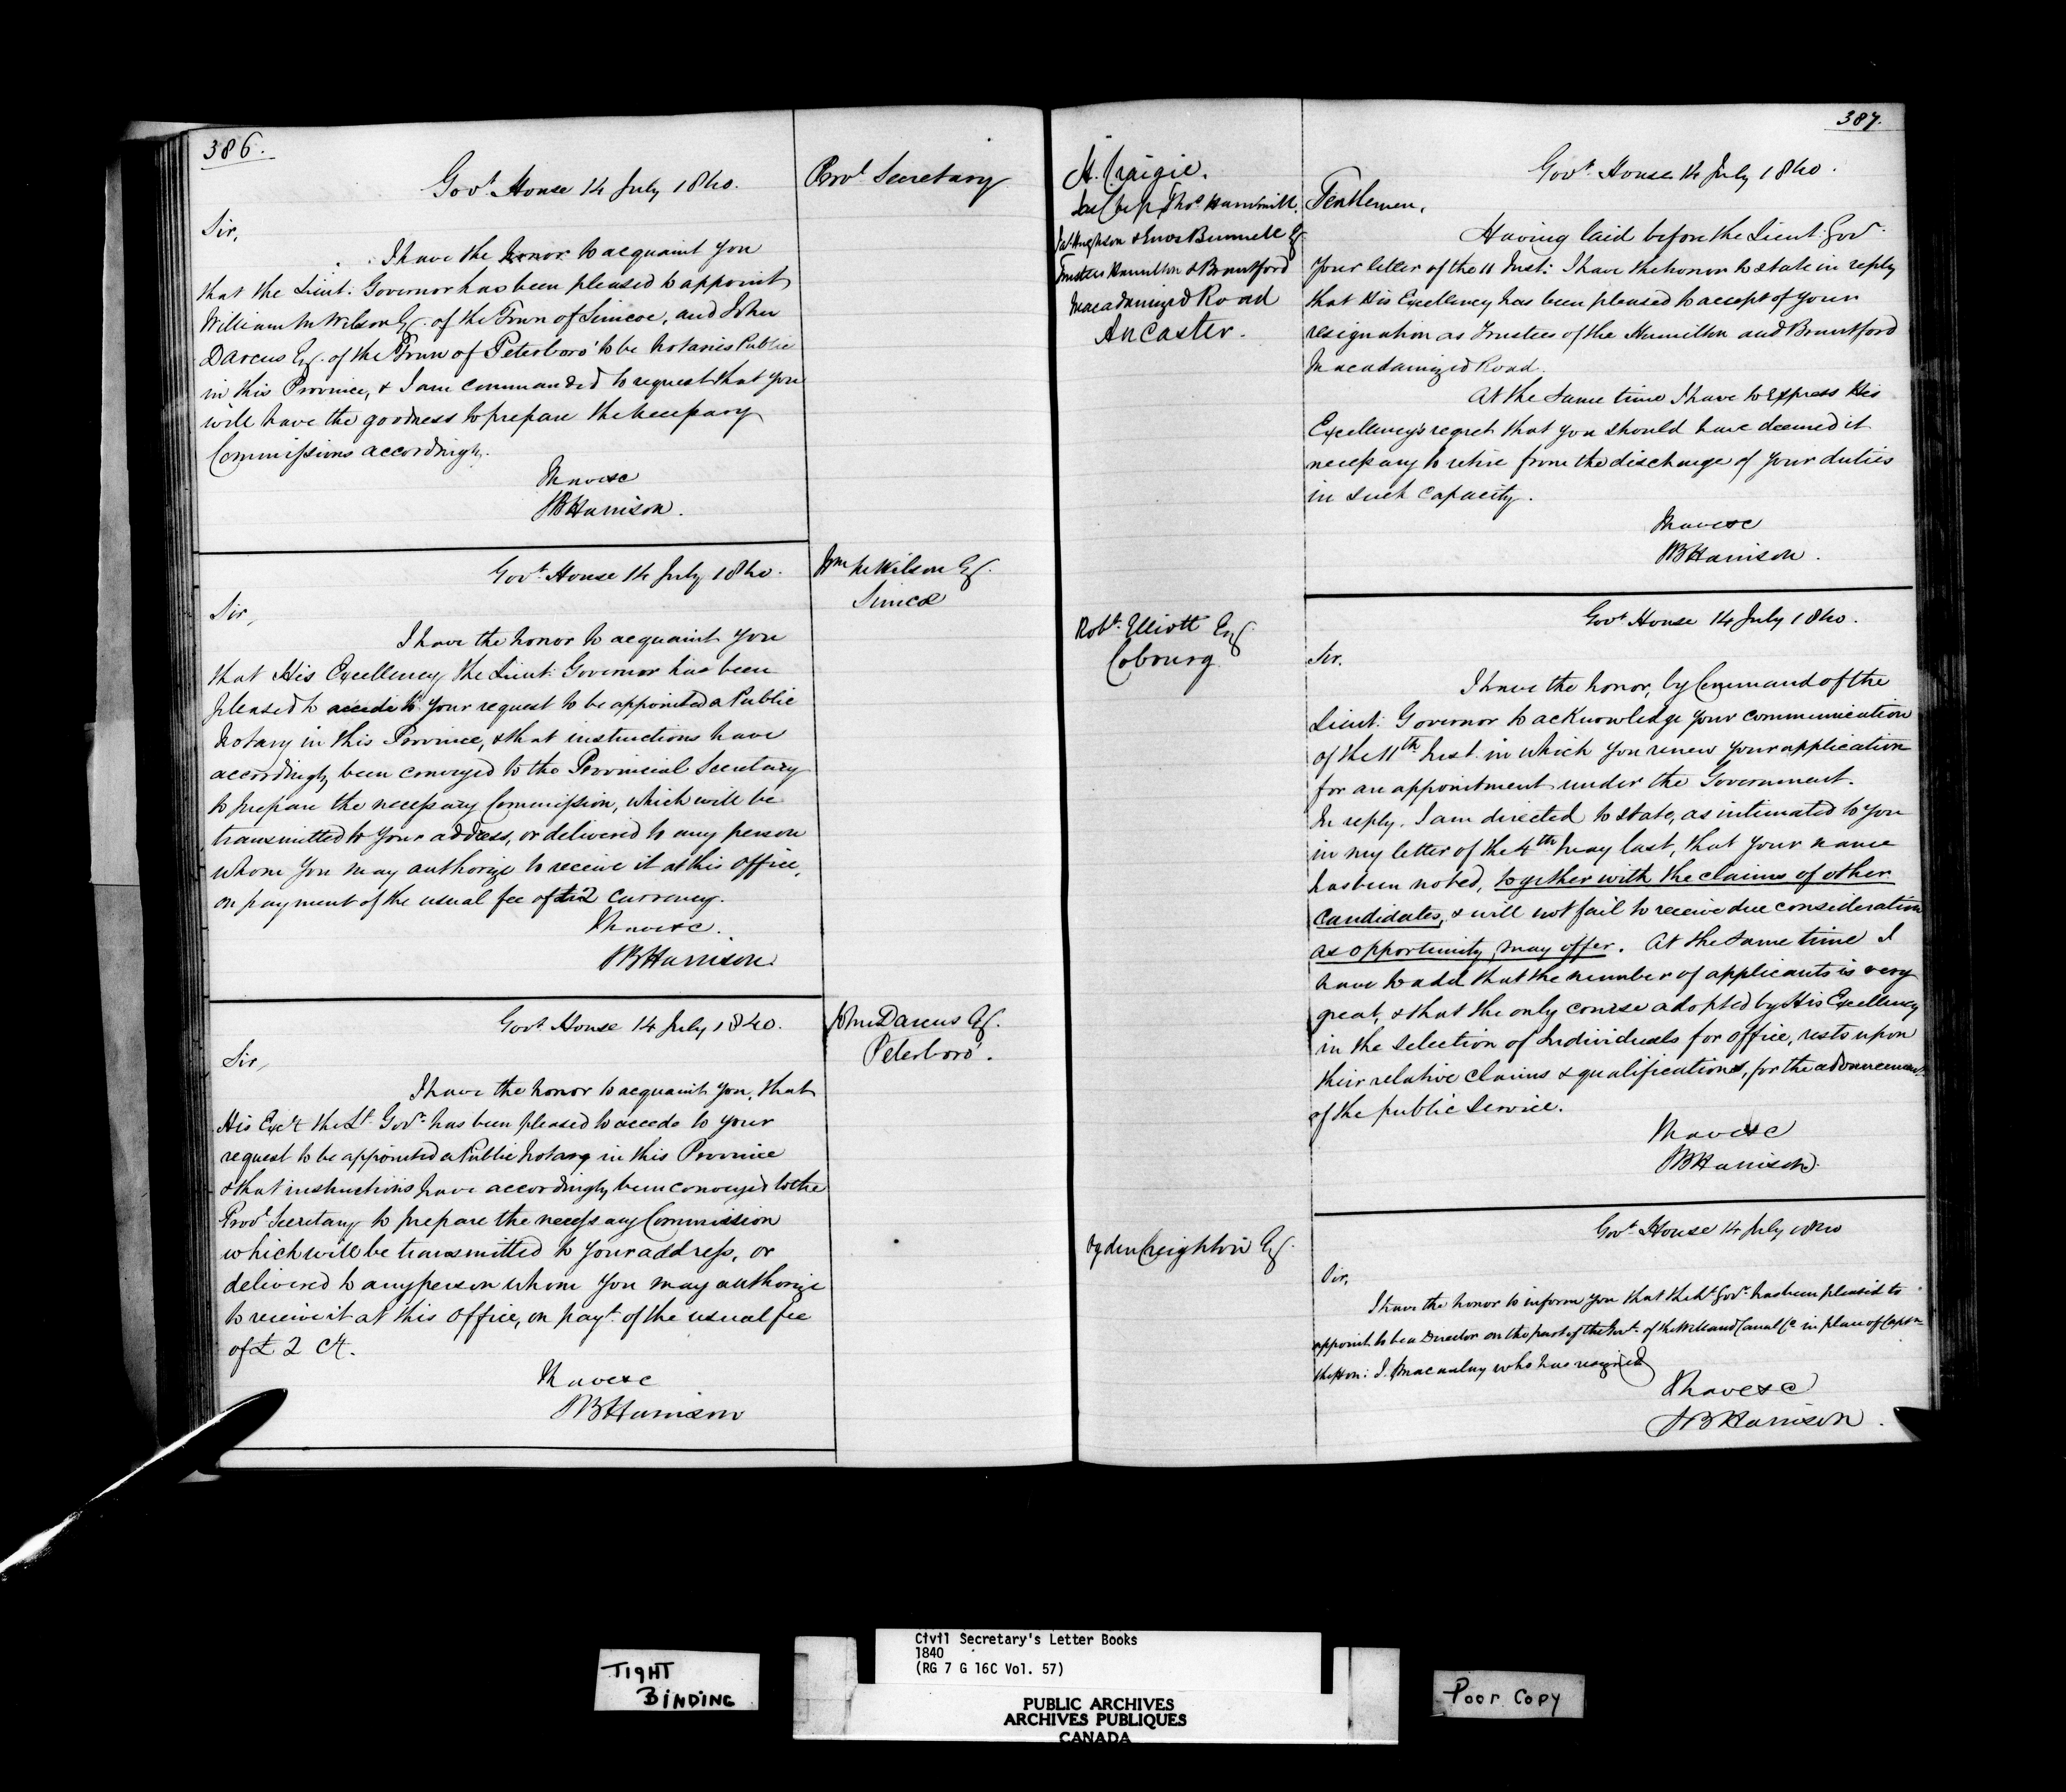 386.
Govt. House 14 July 1840.
Provl Secretary
Sir,
I have the honor to acquaint you
that the Lieut: Governor has been pleased to appoint
William M Wilson Esq. of the Town of Simcoe, and John
Darcus Esq. of the Town of Peterboro' to be Notaries Public
in this Province, & I am commanded to request that you
will have the goodness to prepare the necessary
Commissions accordingly.
I have &c
SB Harrison.
Govt. House 14 July 1840.
Wm M Wilson Esq.
Simcoe
Sir,
I have the honor to acquaint you
that His Excellency the Lieut: Governor has been
pleased to accede to your request to be appointed a Public
Notary in this Province, & that instructions have
accordingly been conveyed to the Provincial Secretary
to prepare the necessary Commission, which will be
transmitted to your address, or delivered to any person
whom you may authorize to receive it at this office,
on payment of the usual fee of £2 currency.
I have &c.
SB Harrison.
Govt. House 14 July 1840.
John Darcus Esq.
Peterboro'.
Sir,
I have the honor to acquaint you, that
His Excy the Lt. Govr. has been pleased to accede to your
request to be appointed a Public Notary in this Province
& that instructions have accordingly been conveyed to the
Provl Secretary to prepare the necessary Commission
which will be transmitted to your address, or
delivered to any person whom you may authorize
to receive it at this office, on payt. of the usual fee
of £ 2 Cy.
I have &c
SB Harrison
387.
Govt. House 14 July 1840.
A. Craigie.
Thos. Hammill.
& Enos Bunnell Esq
Trustees Hamilton & Brantford
Macadamized Road
Ancaster.
Gentlemen,
Having laid before the Lieut: Govr.
your letter of the 11 Inst: I have the honor to state in reply
that His Excellency has been pleased to accept of your
resignation as Trustees of the Hamilton and Brantford
Macadamized Road.
At the same time I have to express His
Excellency's regret that you should have deemed it
necessary to retire from the discharge of your duties
in such capacity.
I have &c
SB Harrison.
Govt. House 14 July 1840.
Robt. Elliott Esq.
Cobourg
Sir.
I have the honor, by Command of the
Lieut: Governor to acknowledge your communication
of the 11th Inst. in which you renew your application
for an appointment under the Government.
In reply, I am directed to state, as intimated to you
in my letter of the 4th May last, that your name
has been noted, together with the claims of other
candidates, & will not fail to receive due consideration
as opportunity may offer. At the same time I
have to add that the number of applicants is very
great, & that the only course adopted by His Excellency
in the selection of Individuals for office, rests upon
their relative claims & qualifications, for the advancement
of the public service.
I have &c
SB Harrison.
Govt. House 14 July 1840
Ogden Creighton Esq.
Sir,
I have the honor to inform you that the Lt. Govr. has been pleased to
appoint to be a Director on the part of the Govt. of the Welland Canal Co in place of Captn
the Hon: J. Macaulay who has resigned
I have &c
SB Harrison.
TIGHT
BINDING
Civil Secretary's Letter Books
1840
(RG 7 G 16C Vol. 57)
PUBLIC ARCHIVES
ARCHIVES PUBLIQUES
CANADA
Poor Copy